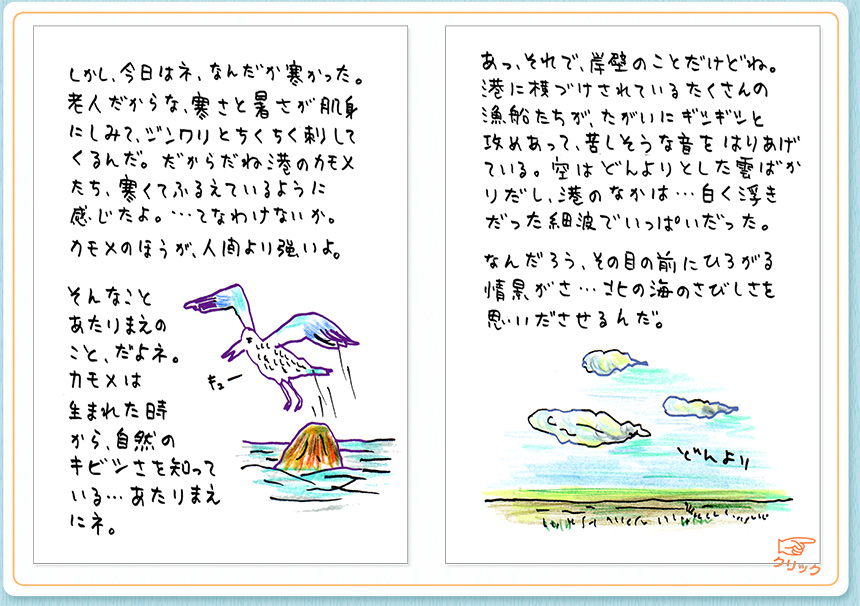 しかし、今日はネ、なんだか寒かった。
老人だからな、寒さと暑さが肌身
にしみて、ジンワリとちくちく刺して
くるんだ。だからだね港のカモメ
たち、寒くてふるえているように
感じたよ。…てなわけないか。
カモメのほうが、人間より強いよ。
そんなこと
あたりまえの
こと、だよネ。
カモメは
生まれた時
から、自然の
キビシさを知って
いる…あたりまえ
にネ。
キュー
あっ、それで、岸壁のことだけどね。
港に横づけされているたくさんの
漁船たちが、たがいにギシギシと
攻めあって、苦しそうな音をはりあげ
ている。空はどんよりとした雲ばか
りだし、港のなかは…白く浮き
だった細波でいっぱいだった。
なんだろう、その目の前にひろがる
情景がさ…北の海のさびしさを
思いださせるんだ。
どんより
クリック